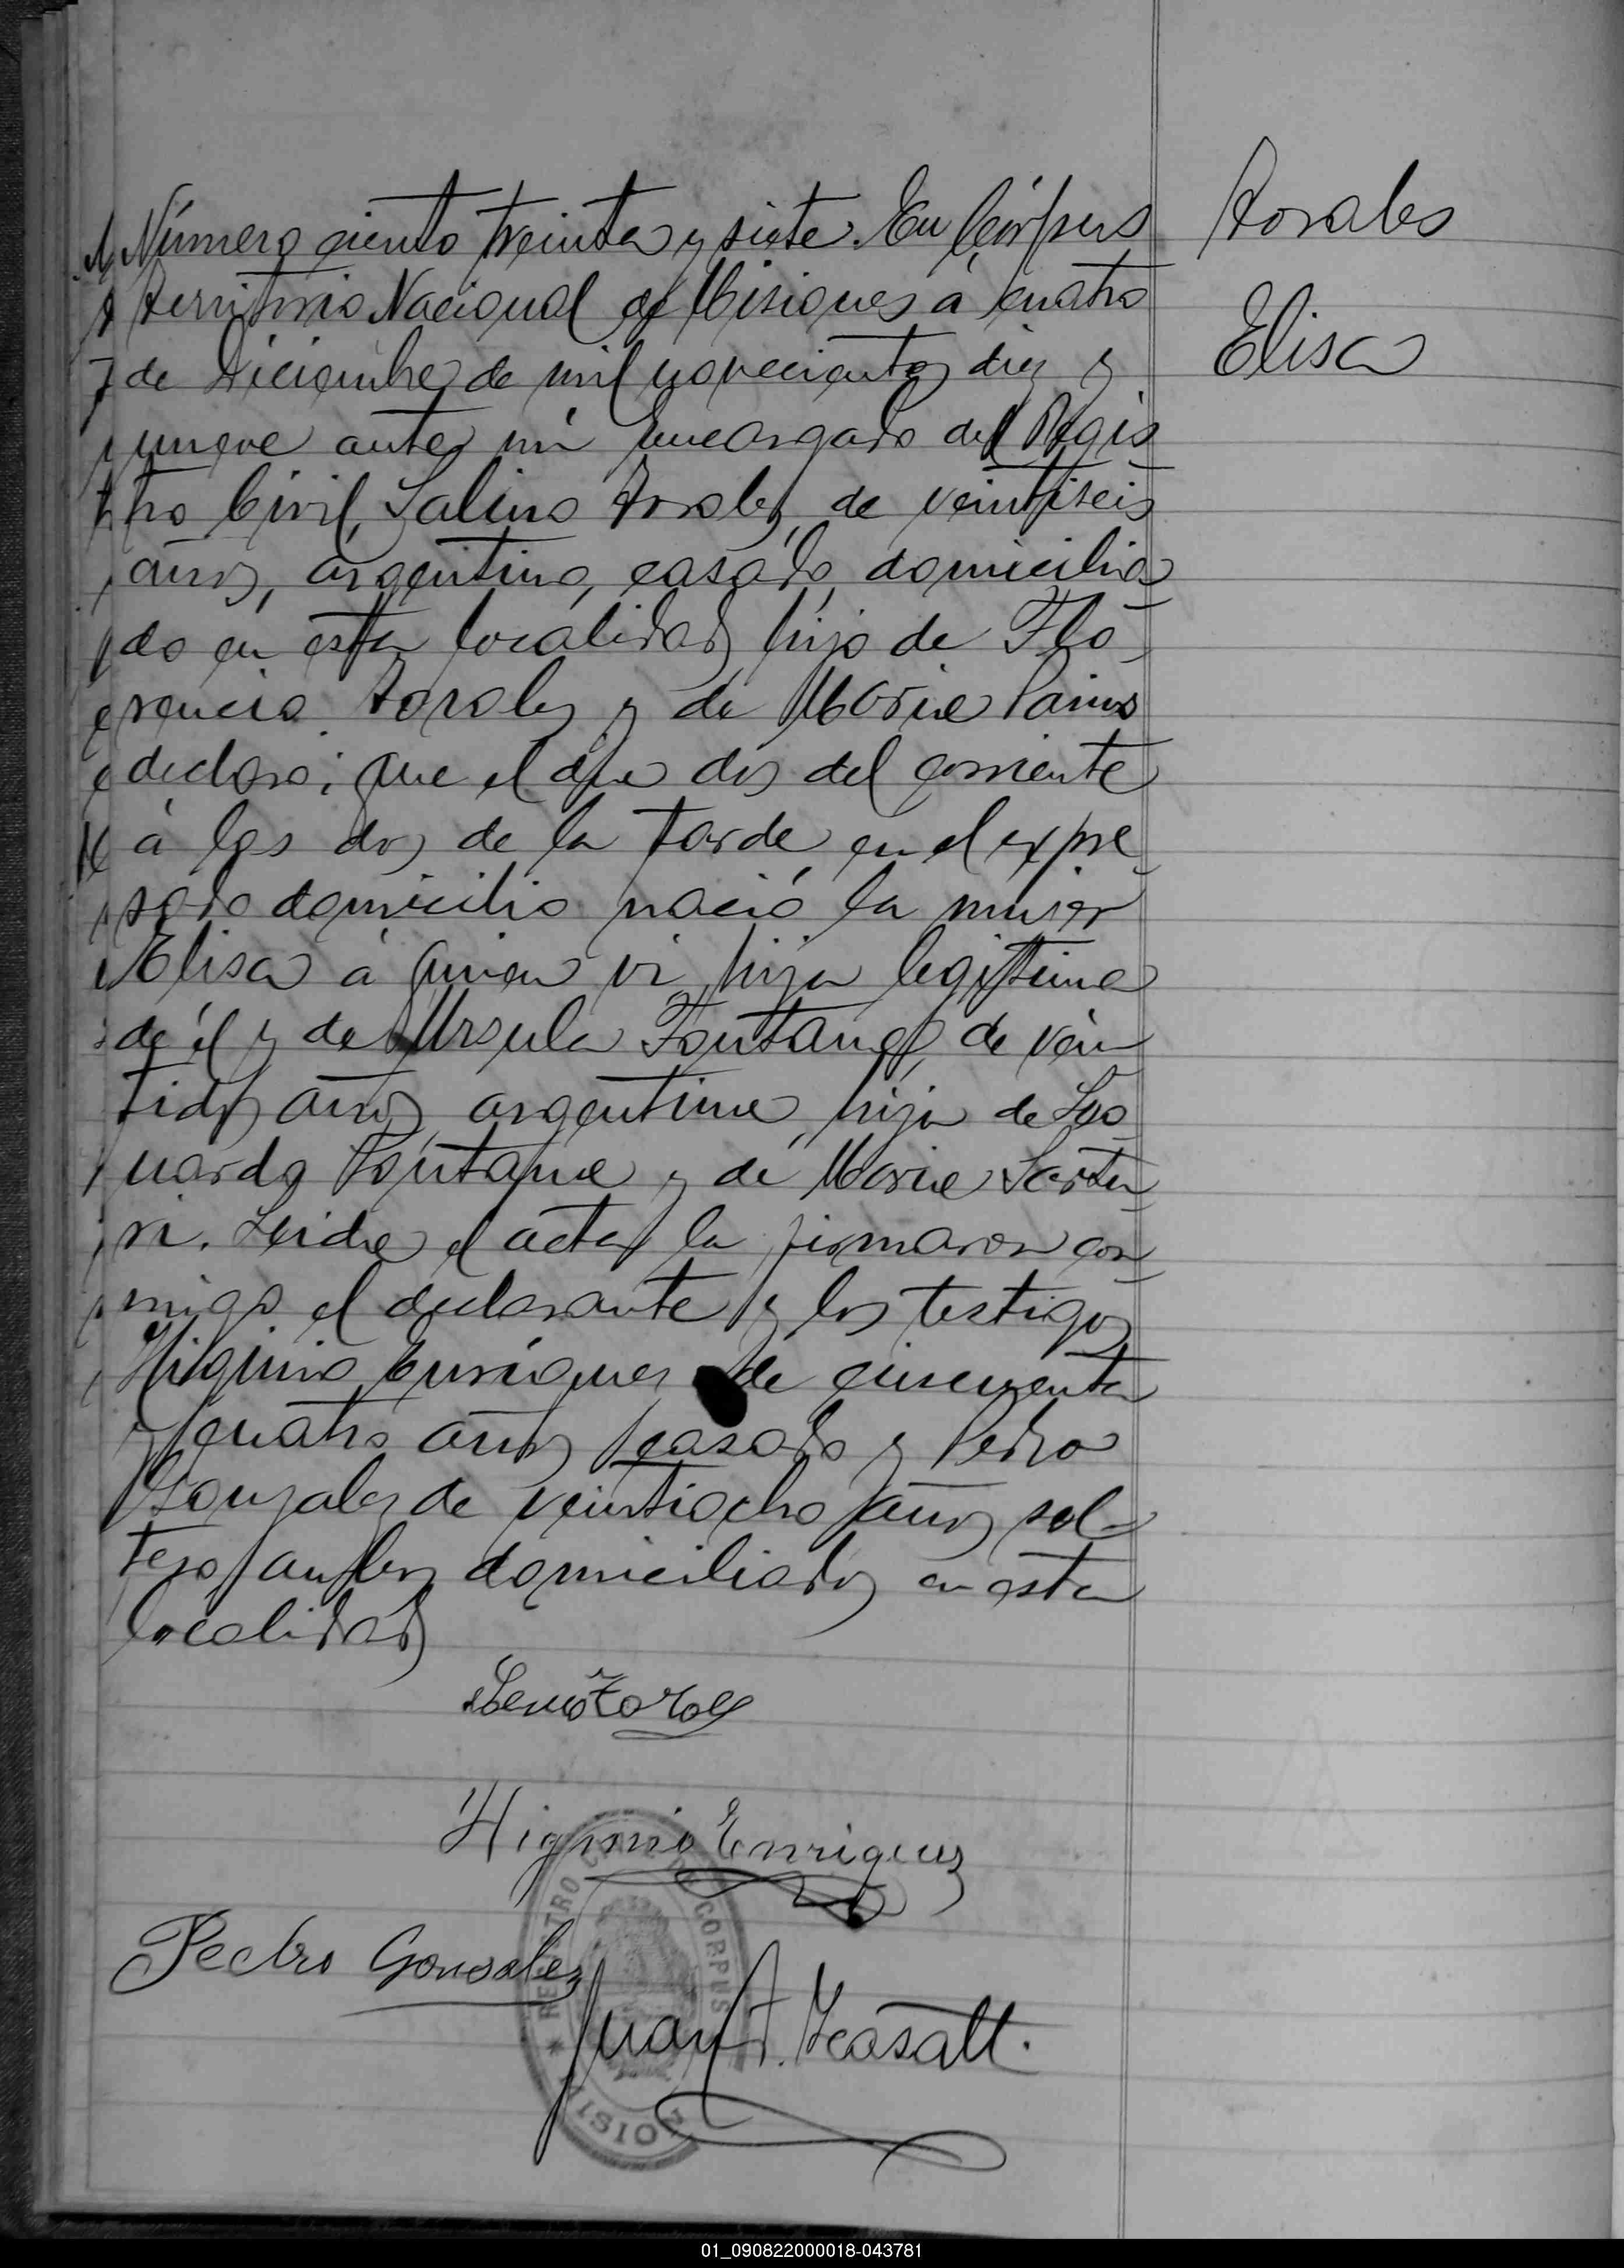 Número ciento treinta y siete. En Córpus
Territorio Nacional de Misiones á cuatro
de Diciembre de mil novecientos diez y
nueve ante mi Encargado del Regis
tro Civil, Galino Rosales de veintiseis
años, argentino, casado, domicilia
do en esta localidad hijo de Flo
rencio Rosales y de Maria
declaro: que el dia dos del corriente
á las dos de la tarde en el expre
sado domicilio nació la mujer
Elisa á quien vi, hija legitima
de él y de Ursula Fontana, de vein
tidos años argentina, hija de Leo
nardo Fontana y de Maria Sarto
ri. Leida el acta la firmaron con
migo el declarante y los testigos
Higinio Enriquez de cincuenta
y cuatro años casado y Pedro
Gonzalez de veintiocho años sol-
tero ambos domiciliados en esta
localidad
Rosales
Elisa
Higinio Enriquez
Pedro Gonsalez
Juan
REGISTRO CORPUS
01_090822000018-043781